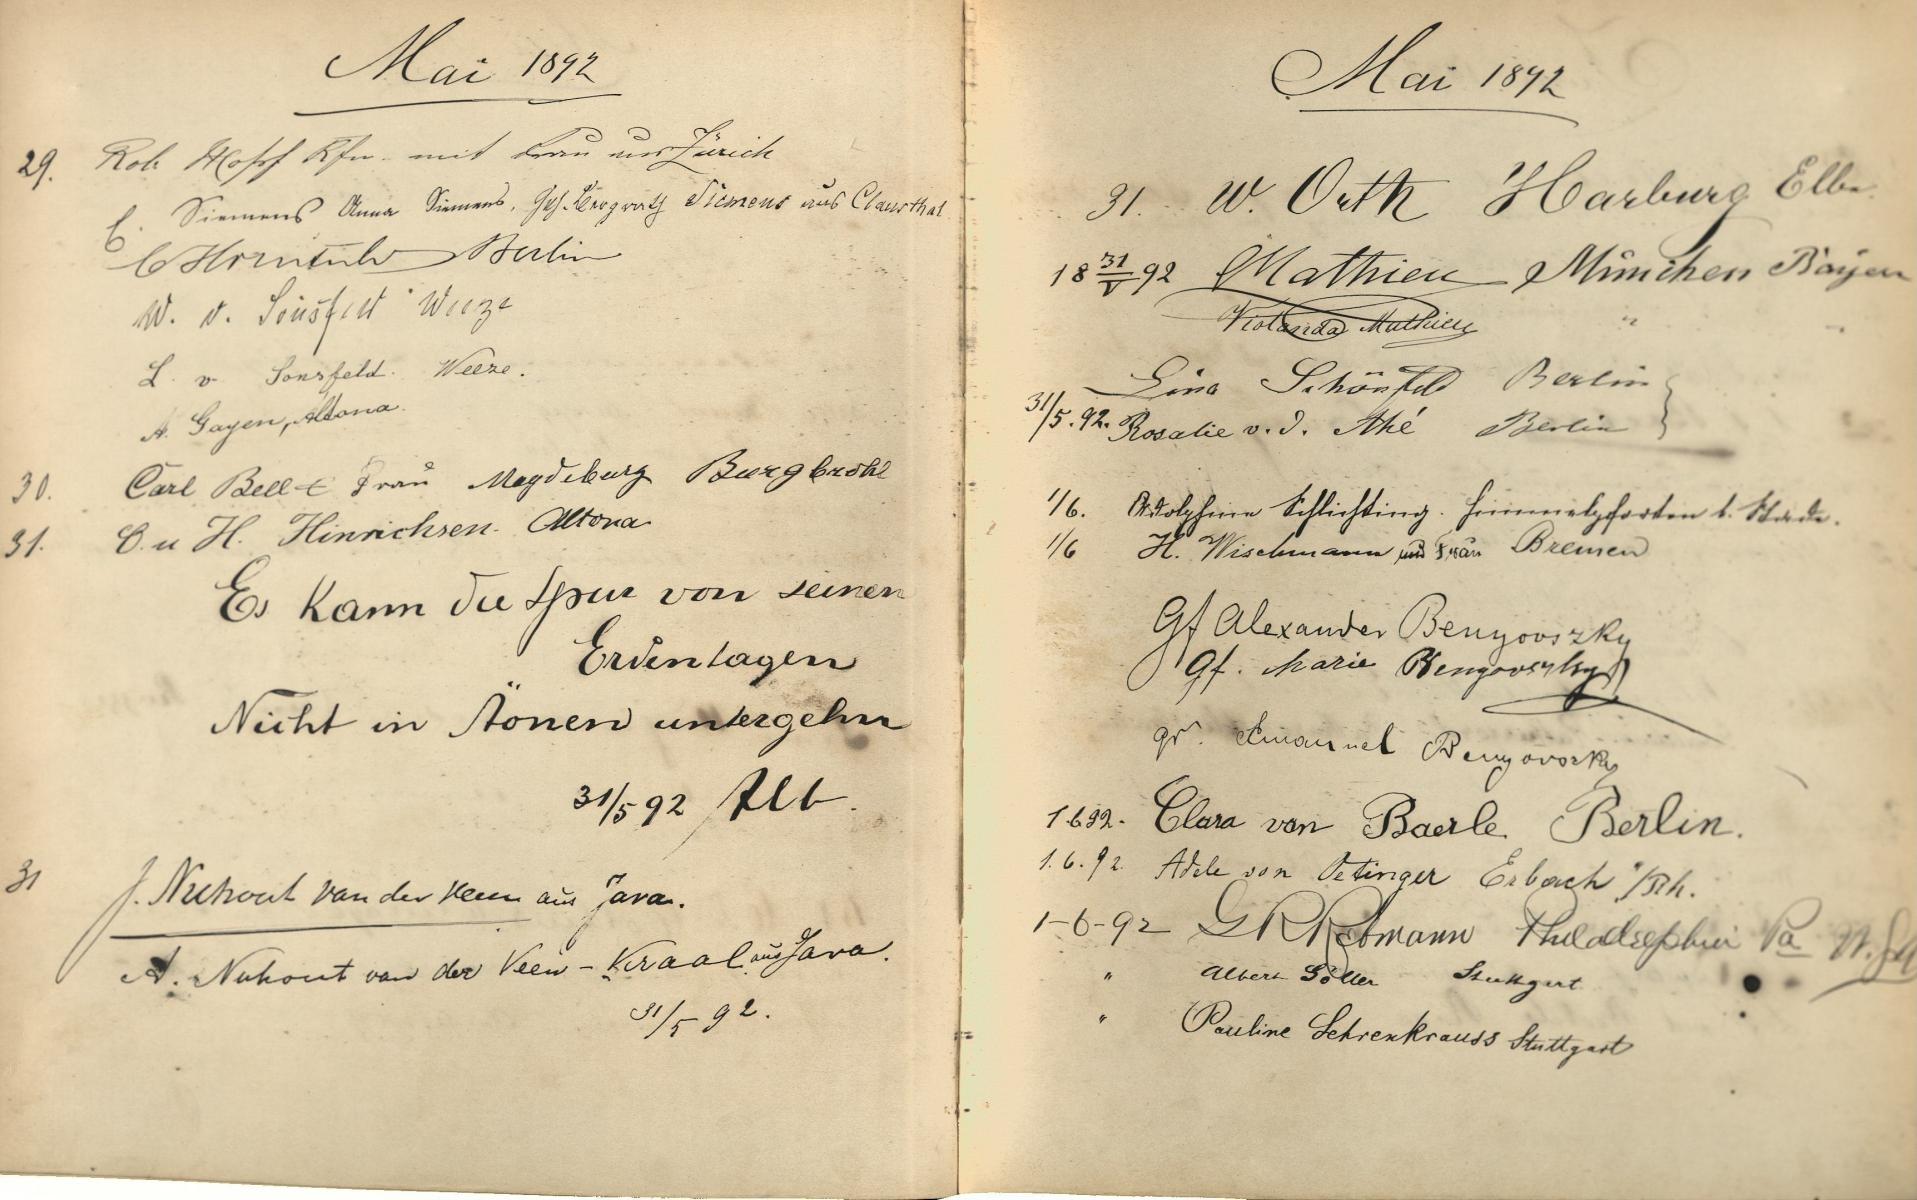 Mai 1892
29. Rob. Hopf Kfm. mit Frau aus Zürich
C. Siemens Anna Siemens, Siemens aus Clausthal
Berlin
W. v. Sonsfeld Weeze
L. v. Sonsfeld. Weeze.
A. Gayen, Altona.
30. Carl Bell & Frau Magdeburg Burgbrohl
31. C. u H. Hinrichsen. Altona
Es kann die Spur von seinen
Erdentagen
Nicht in Äonen untergehn
31/5 92 Alb.
31 J. Nuhout van der Veen aus Java.
A. Nuhout van der Veen - Kraal aus Java.
31/5 92.
Mai 1892
31. W. Orth Harburg Elbe.
18 31/V 92 Mathieu München Bayern
Violanda Mathieu " "
Lina Schönfeld Berlin
31/5.92. Rosalie v. d. Ahé Berlin
1/6. Adolphine Schlichting. Himmelpforten b. Stade.
1/6 H. Wischmann und Frau Bremen
Gf Alexander Benyovszky
Gf. Marie Benyovszky
gr. Emanuel Benyovszky
1.6.92. Clara von Baerle Berlin.
1.6.92 Adele von Oetinger Erbach a/Rh.
1-6-92 G R Rebmann Philadelphia Pa
" Albert Göller Stuttgart
" Pauline Schrenkrauss Stuttgart